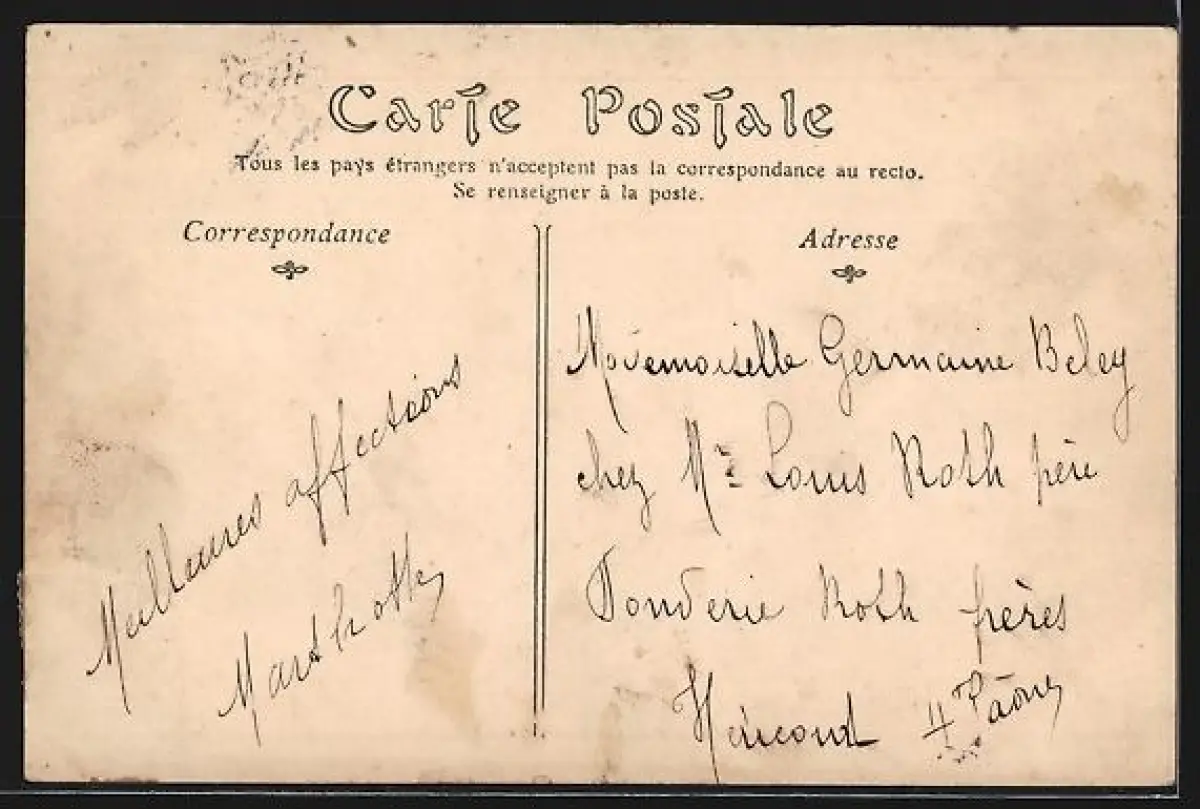 Carte Postale
Tous les pays étrangers n'acceptent pas la correspondance au recto.
Se renseigner à la poste.
Correspondance
Adresse
Meilleures affections
Mademoiselle Germaine Beley
chez Mr Louis Roth père
Fonderie Roth frères
Héricourt Hte Sâone